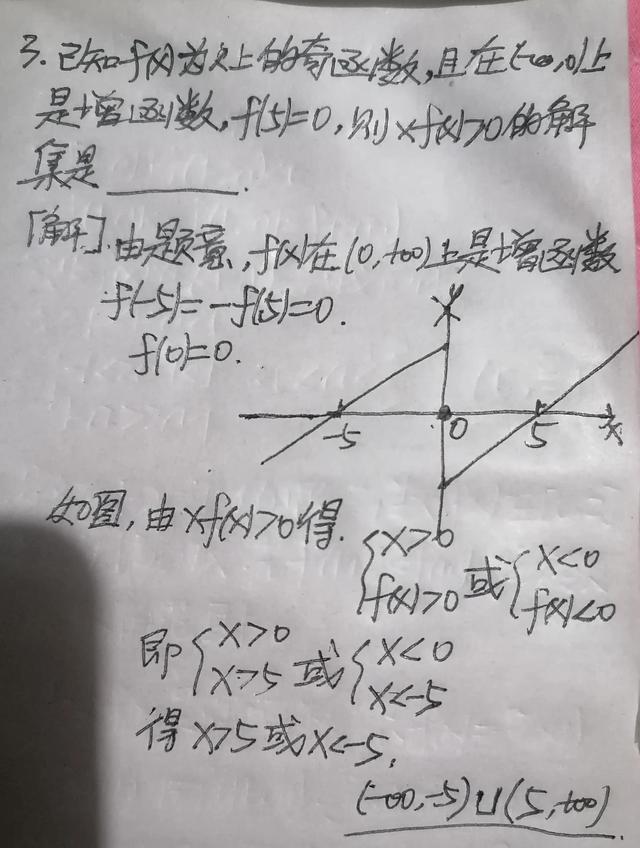 3. 已知f(x)为R上的奇函数,且在(-∞,0)上
是增函数,f(5)=0,则xf(x)>0的解
集是________.
[解].由题意,f(x)在(0,+∞)上是增函数
f(-5)=-f(5)=0.
f(0)=0.
y
-5 0 5 x
如图,由xf(x)>0得.
{x>0 f(x)>0 或 {x<0 f(x)<0
即 {x>0 x>5 或 {x<0 x<-5
得x>5或x<-5,
(-∞,-5)∪(5,+∞)